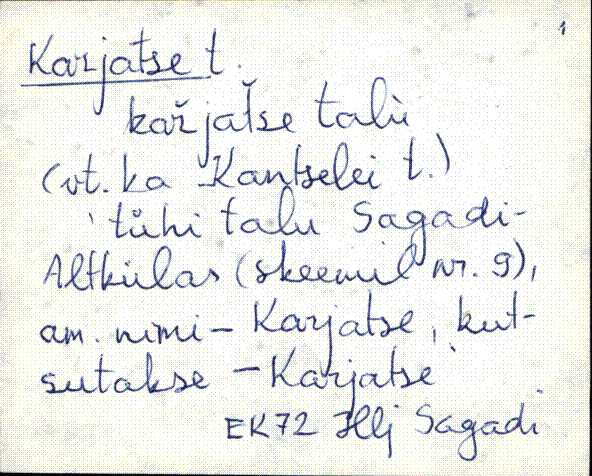 1
Karjatse t.
kařjaťse talù
(vt. ka Kantselei t.)
tühi talu Sagadi-
Altkülas (skeemil nr. 9),
am. nimi - Karjatse, kut-
sutakse - Karjatse
EK72 Hlj Sagadi